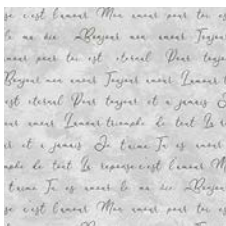 se c'est l'amour Mon amour pour toi es
le ma vie Bonjour mon amour Toujou
amour pour toi est eternel Pour toujou
Bonjour mon amour Toujour amour L'amour t
est eternal Pour toujour et a jamais J
our amour L'amour triomphe de tout La r
ur et a jamais Je t'aime Tu es amour
mphe de tout La reponse c'est l'amour M
t'aime Tu es amour le ma vie Bonjou
se c'est l'amour Mon amour pour toi es